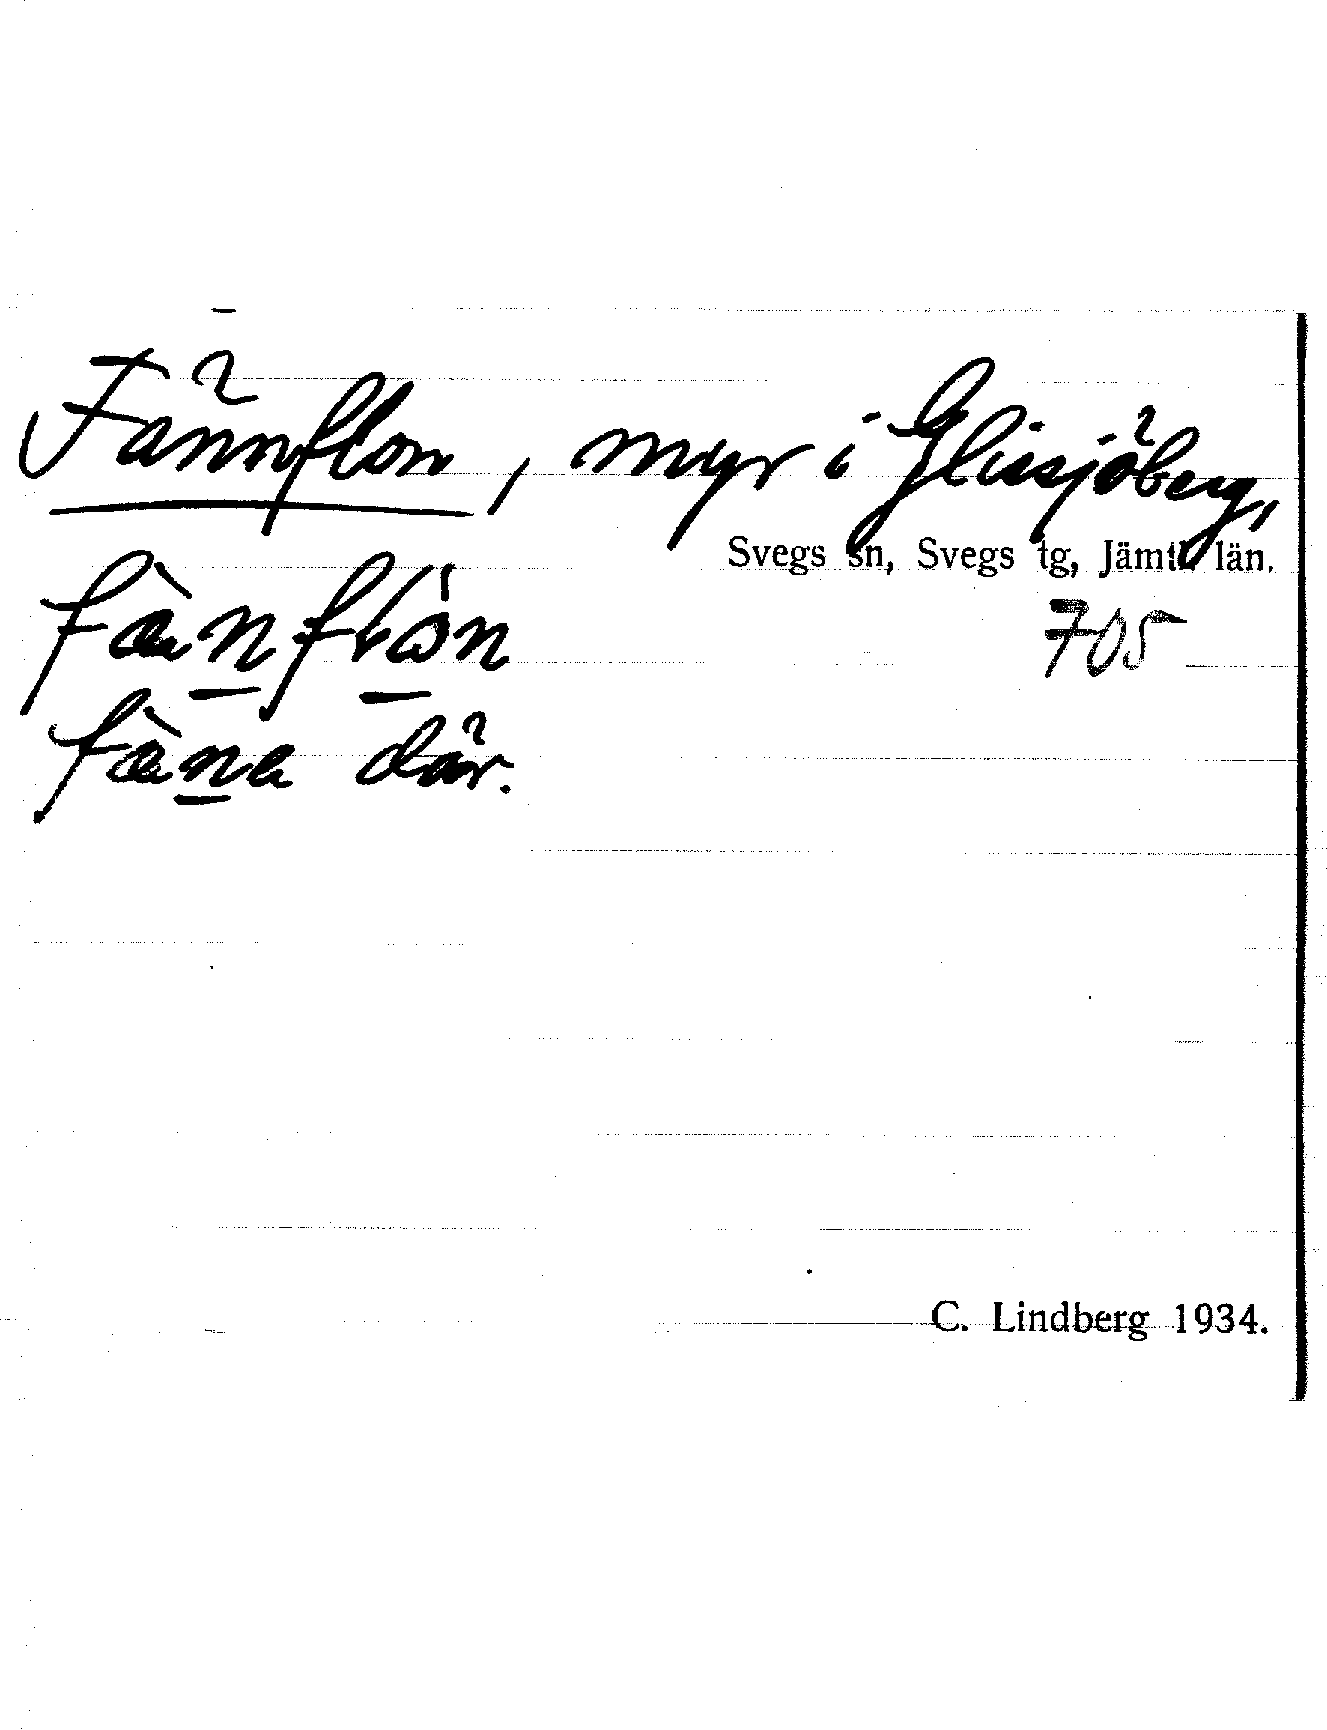 Fännflon, myr i Glissjöberg,
Svegs sn, Svegs tg, Jämtl. län.
fæ̀n̲flò̲n
705
fæ̀n̲a där.
C. Lindberg 1934.